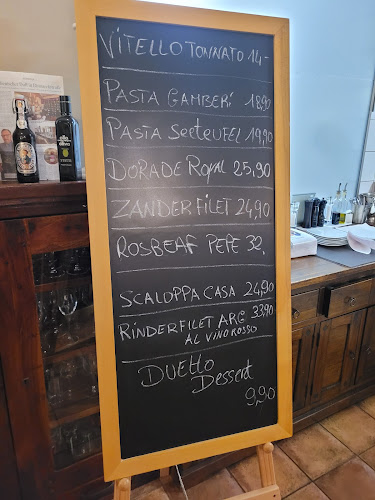 VITELLO TONNATO 14,-
PASTA GAMBERI 18,90
PASTA SEETEUFEL 19,90
DORADE Royal 25,90
ZANDER FILET 24,90
ROSBEAF PEPE 32,
SCALOPPA CASA 24,90
RINDERFILET ARG 33,90
AL VINO ROSSO
DUETTO
Dessert
9,90